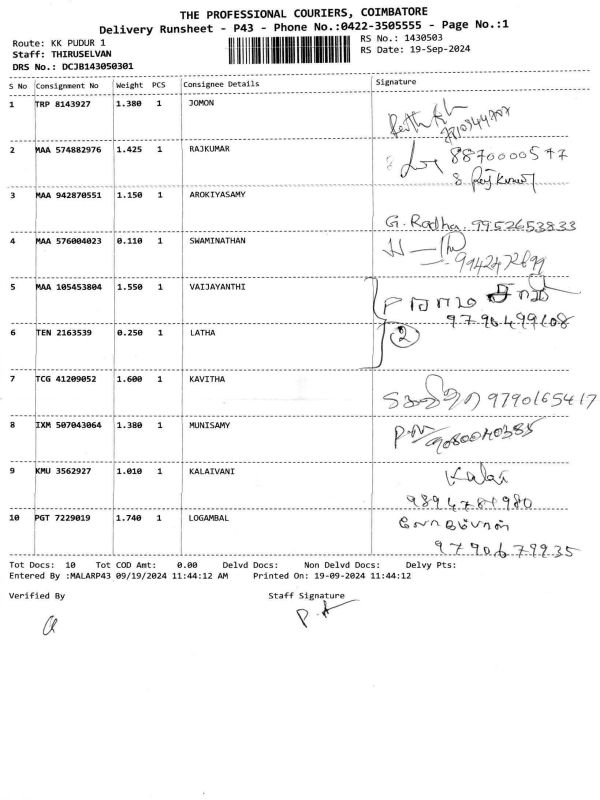 THE PROFESSIONAL COURIERS, COIMBATORE
Delivery Runsheet - P43 - Phone No.:0422-3505555 - Page No.:1
Route: KK PUDUR 1
Staff: THIRUSELVAN
DRS No.: DCJB143050301
RS No.: 1430503
RS Date: 19-Sep-2024
S No Consignment No Weight PCS Consignee Details Signature
1 TRP 8143927 1.380 1 JOMON
2 MAA 574882976 1.425 1 RAJKUMAR
8870000547
S. Rajkumar
3 MAA 942870551 1.150 1 AROKIYASAMY
G. Radha. 9952653833
4 MAA 576004023 0.110 1 SWAMINATHAN
5 MAA 105453804 1.550 1 VAIJAYANTHI
6 TEN 2163539 0.250 1 LATHA
2
7 TCG 41209052 1.600 1 KAVITHA
9790165417
8 IXM 507043064 1.380 1 MUNISAMY
9080040385
9 KMU 3562927 1.010 1 KALAIVANI
Kalai
10 PGT 7229019 1.740 1 LOGAMBAL
லோகம்பாள்
9790679935
Tot Docs: 10 Tot COD Amt: 0.00 Delvd Docs: Non Delvd Docs: Delvy Pts:
Entered By :MALARP43 09/19/2024 11:44:12 AM Printed On: 19-09-2024 11:44:12
Verified By Staff Signature